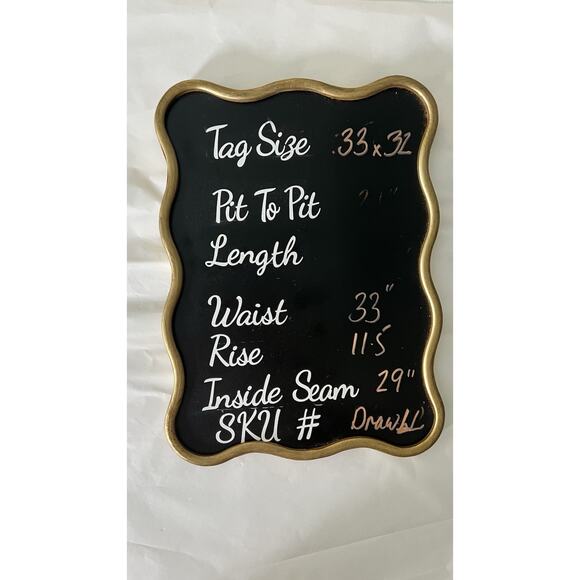 Tag Size .33 x 32
Pit To Pit
Length
Waist 33"
Rise 11.5
Inside Seam 29"
SKU #